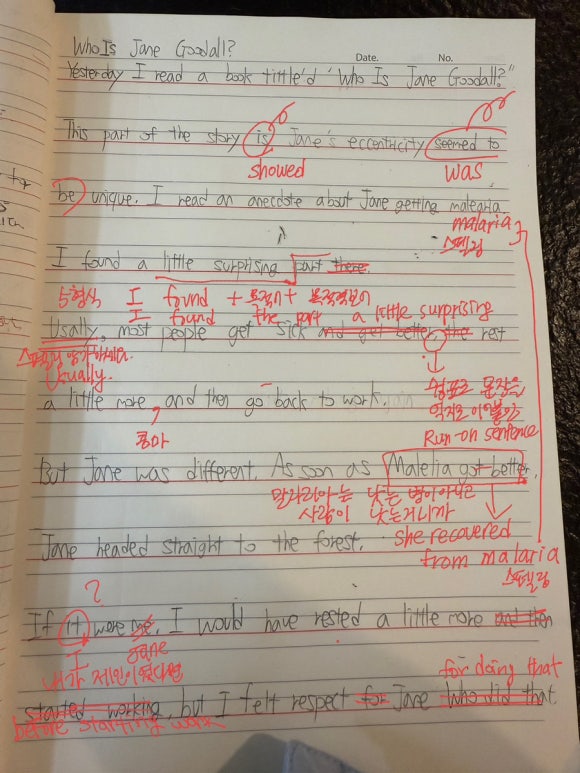 Who Is Jane Goodall?
Date. No.
Yesterday I read a book tittle'd "Who Is Jane Goodall?"
This part of the story is Jane's eccentricity seemed to
showed was
be unique. I read an anecdote about Jane getting malearia.
malaria
스펠링
I found a little surprising part there.
5형식 I found + 목적어 + 목적격보어
I found the part a little surprising
Usally, most people get sick and get better the rest
Usually.
쉼표로 문장을
a little more, and then go back to work.
콤마
억지로 이어붙인
Run-on sentence
But Jane was different. As soon as Malelia got better,
말라리아는 낫는 병이 아니고
사람이 낫는거니까
Jane headed straight to the forest.
she recovered
from malaria
스펠링
?
If it were me, I would have rested a little more and then
I Jane
내가 제인이었다면
for doing that
started working, but I felt respect for Jane who did that
before starting work